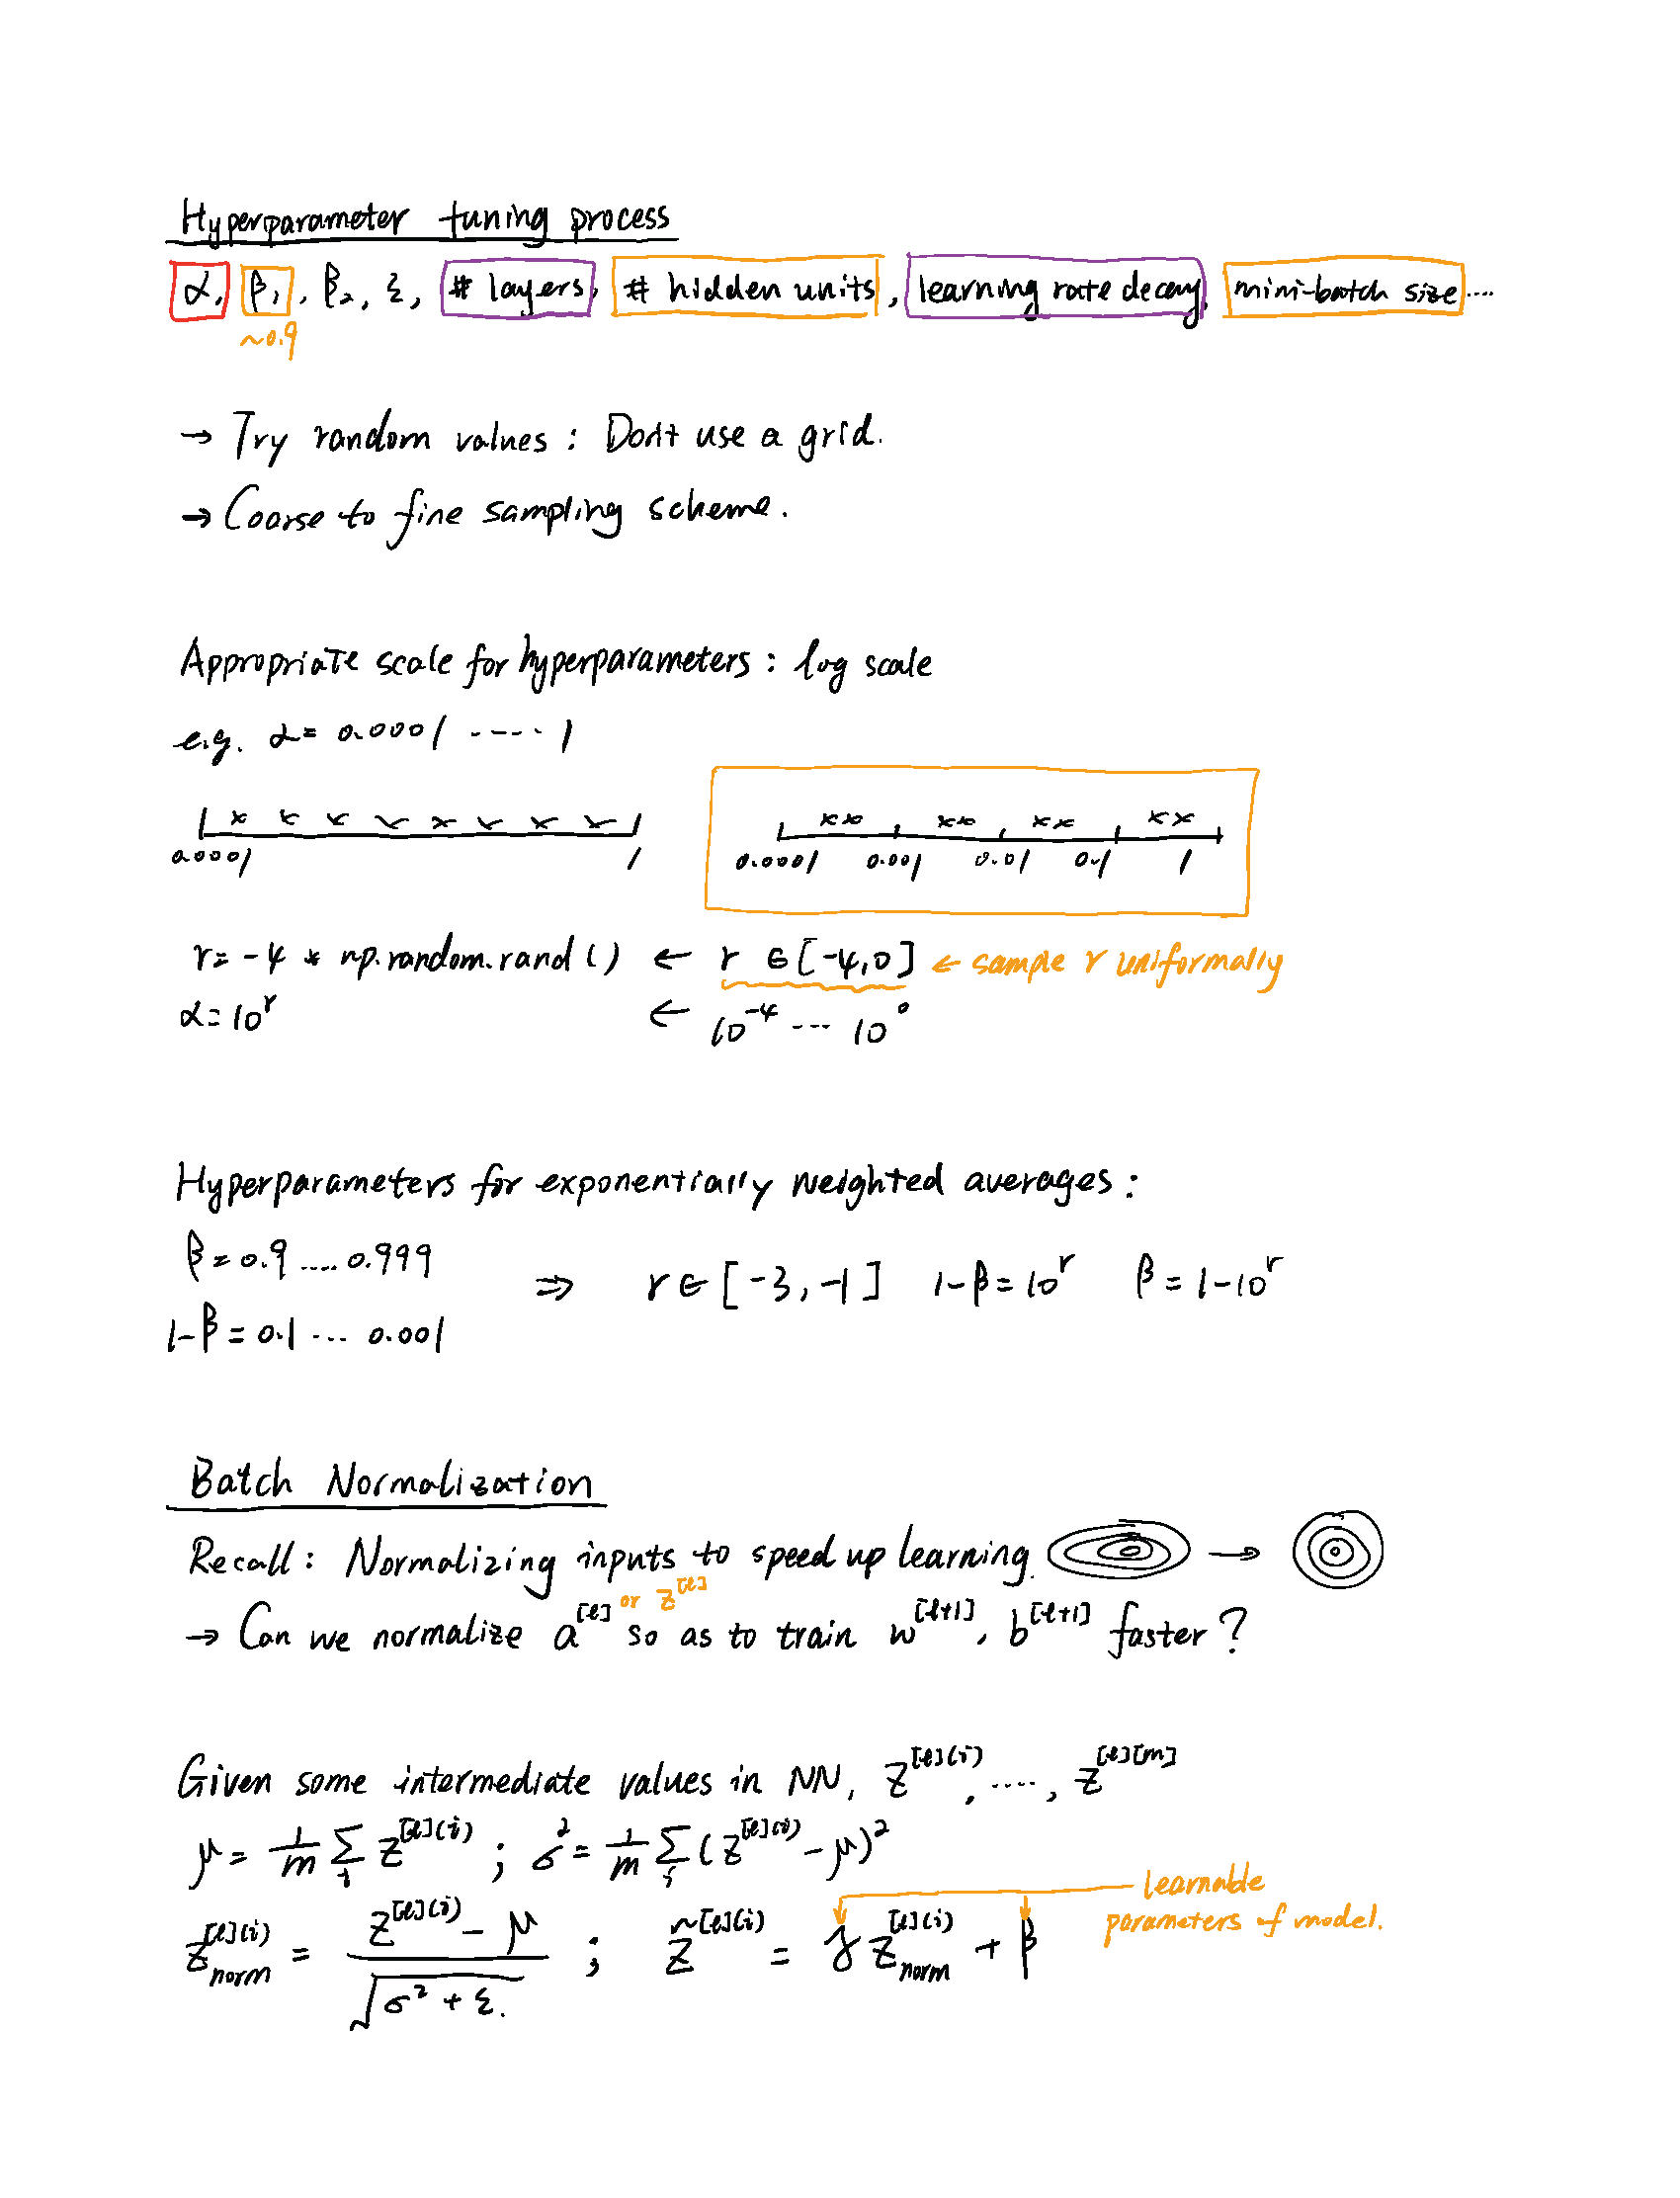 Hyperparameter tuning process
α, β₁, β₂, ε, # layers, # hidden units, learning rate decay, mini-batch size ....
~0.9
→ Try random values : Don't use a grid.
→ Coarse to fine sampling scheme.
Appropriate scale for hyperparameters : log scale
e.g. α = 0.0001 ..... 1
0.0001 1
0.0001 0.001 0.01 0.1 1
r = -4 * np.random.rand() ← r ∈ [-4, 0] ← sample r uniformally
α = 10^r ← 10^-4 ... 10^0
Hyperparameters for exponentially weighted averages :
β = 0.9 ..... 0.999
⇒ r ∈ [-3, -1] 1-β = 10^r β = 1-10^r
1-β = 0.1 ... 0.001
Batch Normalization
Recall : Normalizing inputs to speed up learning. →
or z^[l]
→ Can we normalize a^[l] so as to train w^[l+1], b^[l+1] faster ?
Given some intermediate values in NN, z^[l](i), ...., z^[l][m]
μ = 1/m Σ_i z^[l](i) ; σ² = 1/m Σ_i (z^[l](i) - μ)²
learnable
parameters of model.
z_norm^[l](i) = (z^[l](i) - μ) / √(σ² + ε) ; z̃^[l](i) = γ z_norm^[l](i) + β